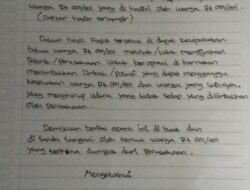 warga Rt 001/001 yang di hadiri oleh warga Rt 001/001.
(Daftar hadir terlampir)
Dalam hasil Rapat tersebut di dapat kesepakatan
bahwa warga Rt 001/001 menolak / tidak mengijinkan
Pabrik / Perusahaan untuk beroprasi di karnakan
menimbulkan limbah / polusi yang dapat mengganggu
kesehatan warga Rt 001/001 dan warga yang lainnya,
yang menghirup udara yang tidak sedap yang ditimbulkan
oleh Perusahaan.
Demikian berita acara ini di buat dan
di tanda tangani oleh semua warga Rt 001/001
yang terkena dampak dari Perusahaan.
Mengetahui